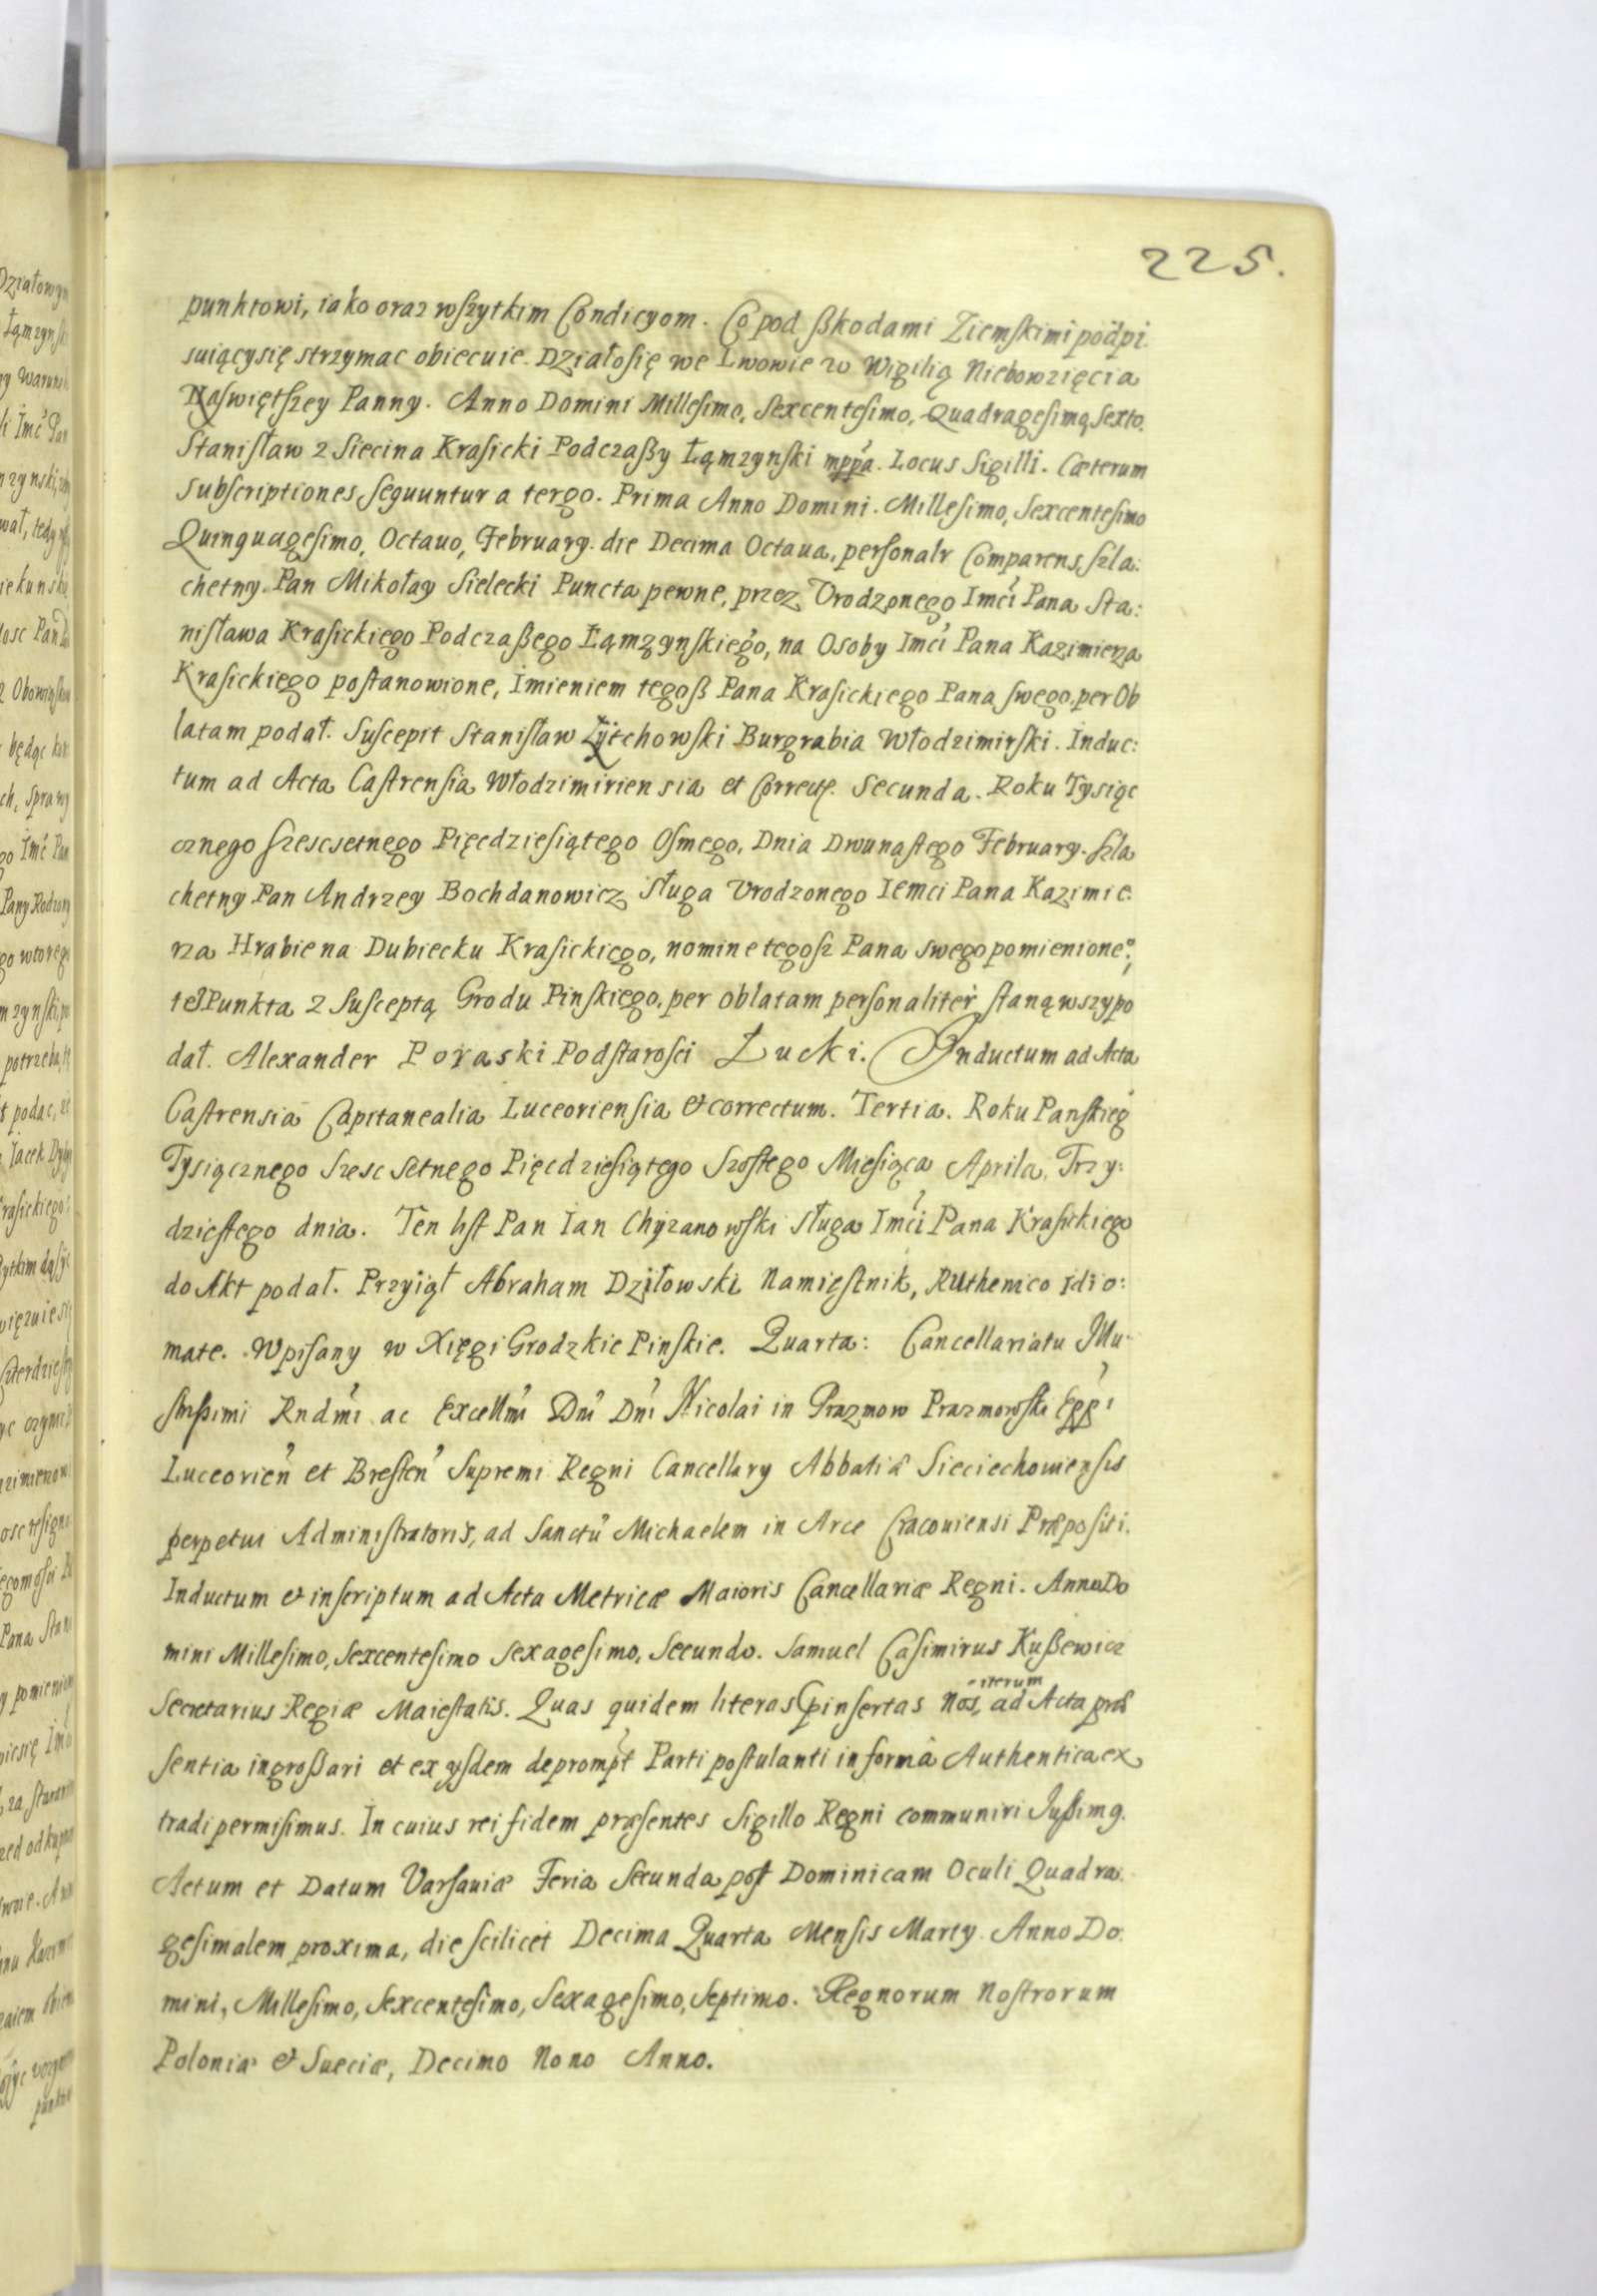 225.
punktowi, iako oraz wſzytkim Condicyom. Co pod ßkodami Ziemſkimi podpi.
suiącysię strzymac obiecuie. Działoſię we Lwowie w Wigilią Niebowzięcia
Naſwiętſzey Panny. Anno Domini Milleſimo, Sexcenteſimo, Quadrageſimą Sexto.
Staniſław z Siecina Kraſicki Podczaßy Łąmzynſki mppa. Locus Sigilli. Cæterum
Subſcriptiones ſequuntur a tergo. Prima Anno Domini. Milleſimo, Sexcenteſimo
Quinquageſimo, Octauo, February. die Decima Octaua, perſonalr Comparens, ſzla:
chetny Pan Mikołay Sielecki Puncta pewne, przez Vrodzonego Imći Pana Sta:
niſława Kraſickiego Podczaßego Łąmzynſkiego, na Osoby Imći Pana Kazimierza
Kraſickiego poſtanowione, imieniem tegoß Pana Kraſickiego Pana ſwego, per Ob
latam podał. Suſcepit Staniſław Żytchowſki Burgrabia Włodzimirſki. Induc:
tum ad Acta Caſtrenſia Włodzimiriensia et Correct. Secunda. Roku Tysiąc
cznego ſzescsetnego Pięćdzieſiątego Oſmego, Dnia Dwunaſtego February. ſzla
chetny Pan Andrzey Bochdanowicz Sługa Vrodzonego Iemci Pana Kazimie:
rza Hrabie na Dubiecku Kraſickiego, nomine tegoſz Pana swego pomienione°,
te Punkta z Suſceptą Grodu Pinſkiego, per oblatam perſonaliter ſtanąwszy po
dał. Alexander Poraski Podſtaroſci Łucki. Inductum ad Acta
Caſtrensia Capitanealia Luceorienſia & correctum. Tertia. Roku Panſkieg
Tysiącznego Szesc Setnego Pięcdzieſiątego Szoſtego Mieſiąca Aprila, Trzy:
dzieſtego dnia. Ten liſt Pan Ian Chyzanowſki Sługa Imći Pana Kraſickiego
do Akt podał. Przyiął Abraham Dziłowski Namieſtnik, Ruthenico idio:
mate. Wpiſany w Xięgi Grodzkie Pinſkie. Quarta: Cancellariatu Illu
ſtrißimi Rndmi ac Excellmi Dni Dni Nicolai in Prazmow Prazmowſki Eppi
Luceorien et Breſten Supremi Regni Cancellary Abbatiæ Sieciechowienſis
perpetui Adminiſtratoris, ad Sanctu Michaelem in Arce Cracouiensi Præpoſiti.
Inductum & inſcriptum ad Acta Metricæ Maioris Cancellariæ Regni. Anno Do
mini Milleſimo, Sexcenteſimo Sexageſimo, Secundo. Samuel Caſimirus Kußewicz
Secretarius Regiæ Maieſtatis. Quas quidem literas pinſertas Nos, iterum ad Acta præ
ſentia ingroßari et ex ysdem deprompt Parti poſtulanti in formâ Authentica ex
tradi permiſimus. In cuius rei fidem præſentes Sigillo Regni communiri Jußimq.
Actum et Datum Varſauiæ Feria Secunda poſt Dominicam Oculi Quadra.
geſimalem proxima, die ſcilicet Decima Quarta Mensis Marty. Anno Do.
mini, Milleſimo, Sexcenteſimo, Sexageſimo, Septimo. Regnorum Noſtrorum
Poloniæ & Sueciæ, Decimo Nono Anno.